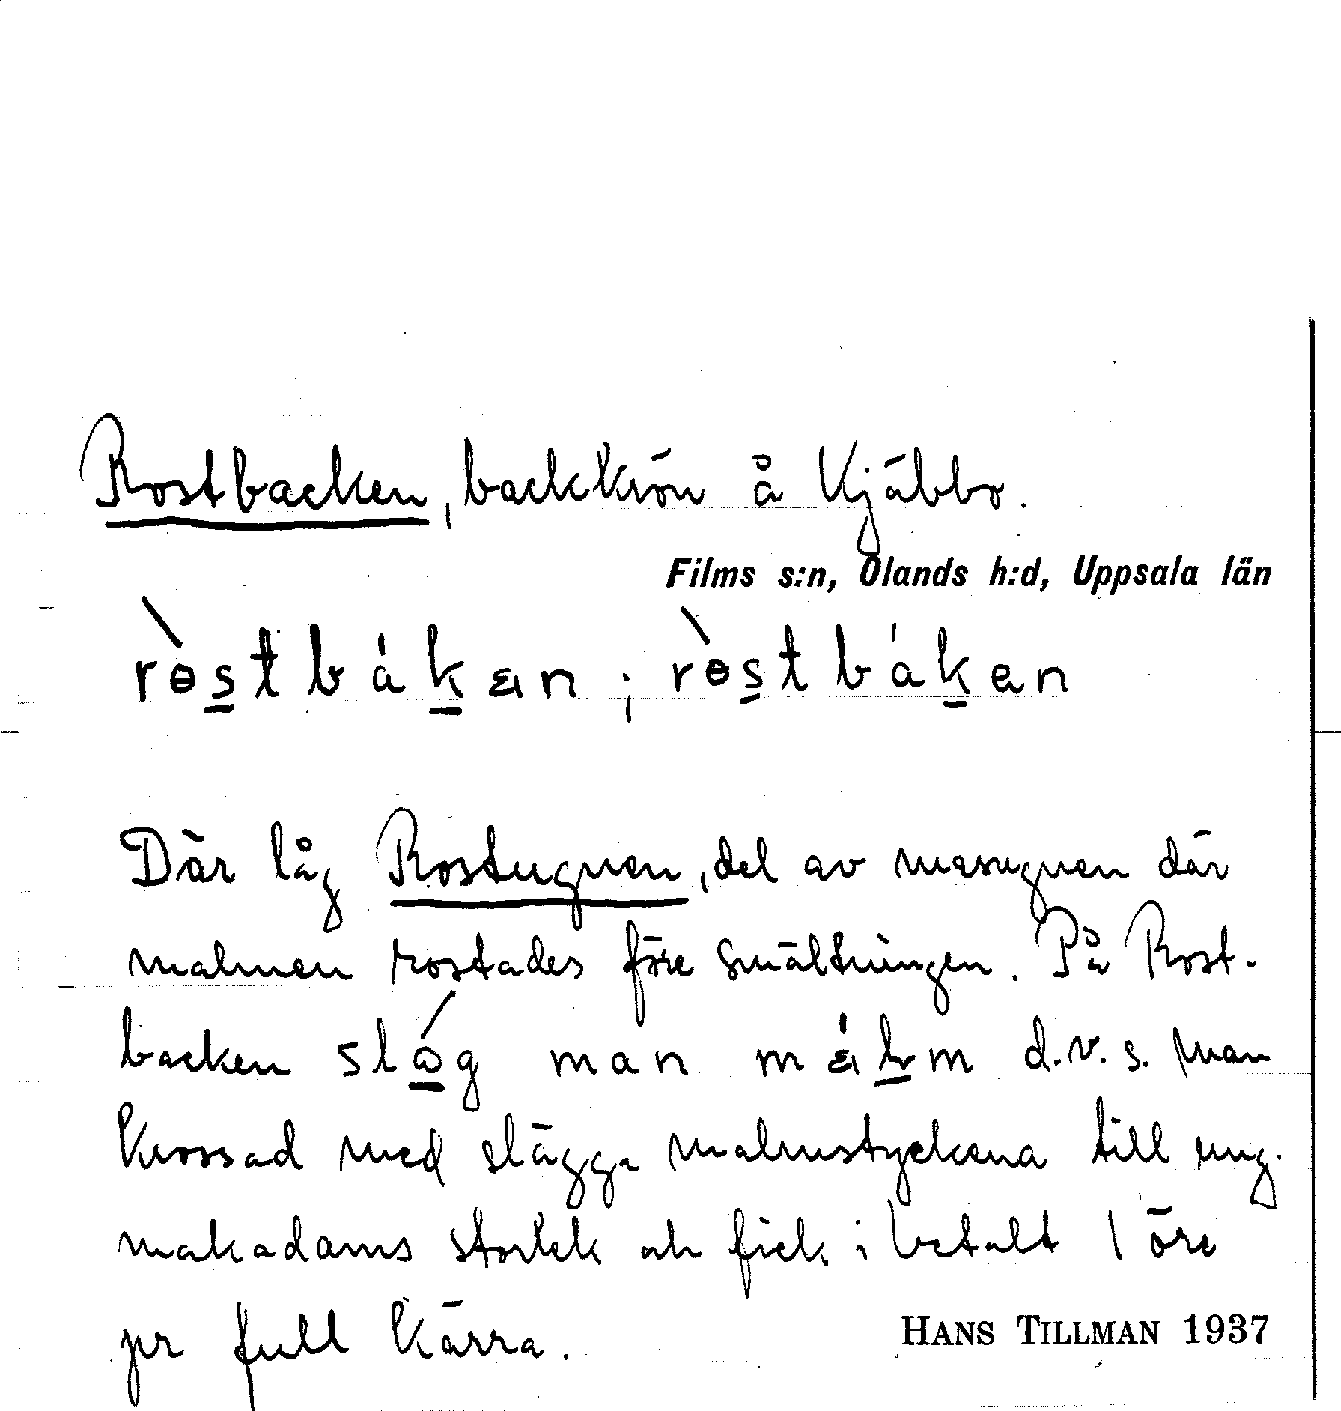 Rostbacken, backkrön å Kjäbbo.
Films s:n, Olands h:d, Uppsala län
ròstbáken; ròstbáken
Där låg Rostugnen, del av masugnen där
malmen rostades före smältningen. På Rost-
backen slog man malm d.v.s. man
krossad med slägga malmstyckena till ung.
makadams storlek och fick i betalt 1 öre
pr full kärra.
HANS TILLMAN 1937